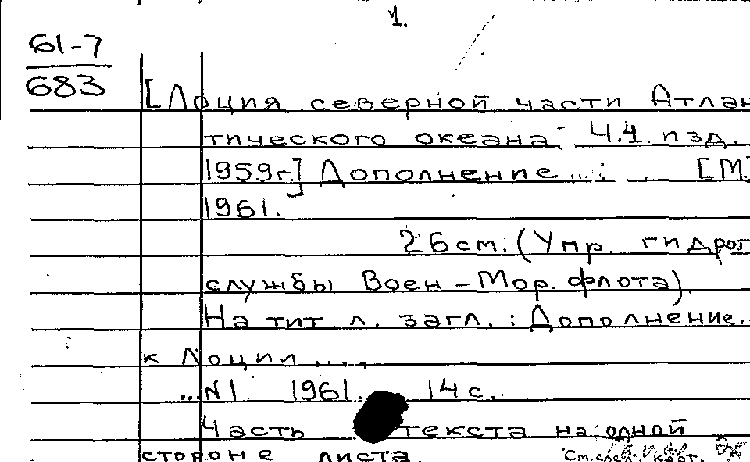 1.
61-7
683
[Лоция северной части Атлан
тического океана Ч.1. изд.
1959г.] Дополнение...: . [М.
1961.
26см. (Упр. гидрог
службы Воен-Мор. флота).
На тит л. загл.: Дополнение.
к Лоции ....
...N1 1961. 14с.
Часть текста на одной
стороне листа.
См. след.